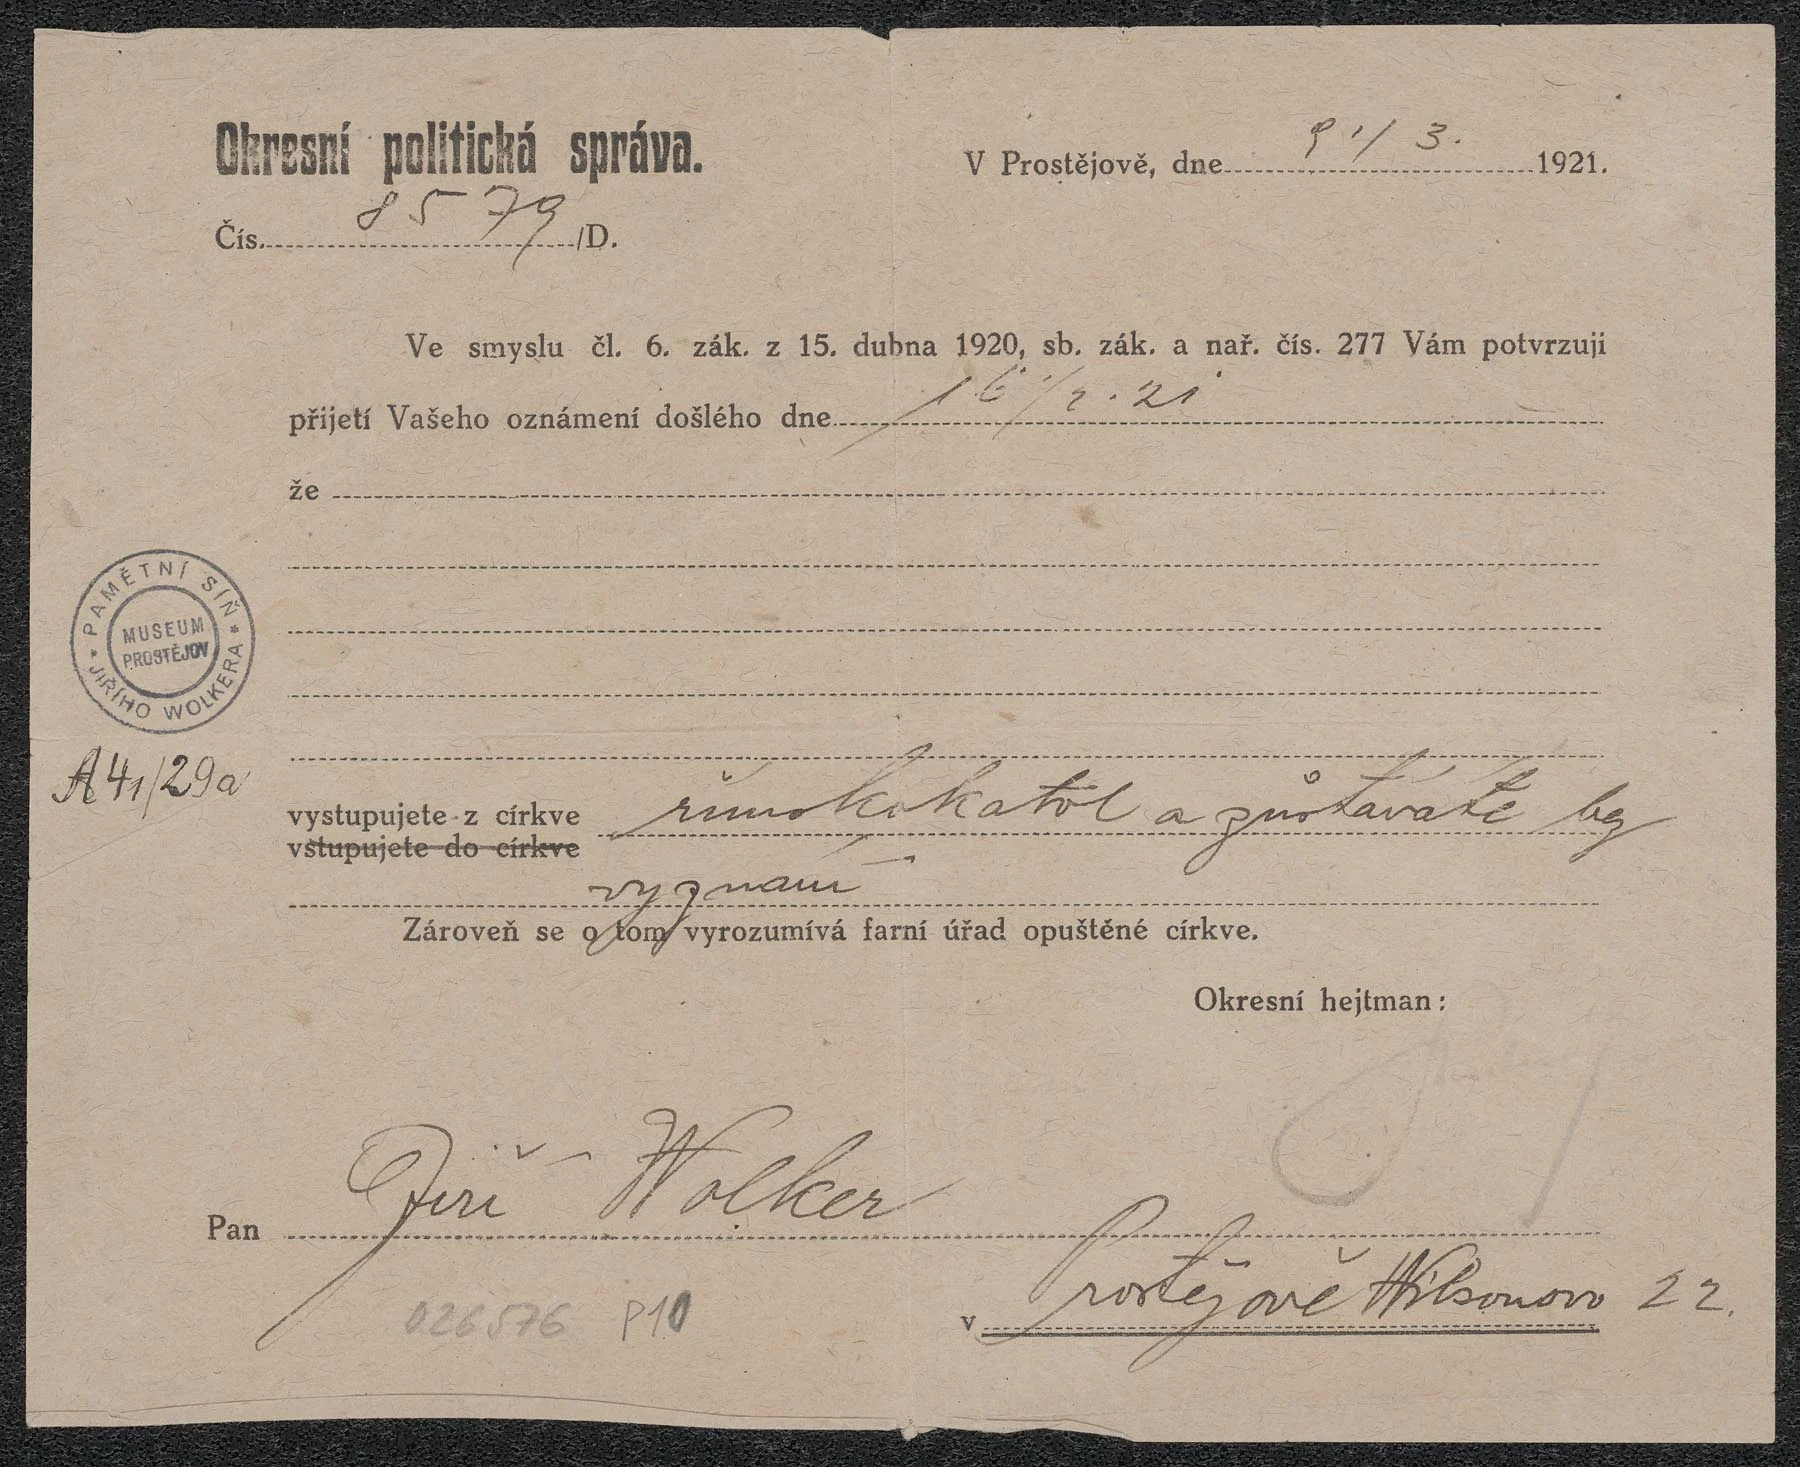 Okresní politická správa.
V Prostějově, dne 9/3. 1921.
Čís. 8579/D.
Ve smyslu čl. 6. zák. z 15. dubna 1920, sb. zák. a nař. čís. 277 Vám potvrzuji
přijetí Vašeho oznámení došlého dne 16/2.21
že
PAMĚTNÍ SÍŇ
MUSEUM
PROSTĚJOV
JIŘÍHO WOLKERA
A41/29a
vystupujete z církve římskokatol a zůstáváte bez
vstupujete do církve
vyznání
Zároveň se o tom vyrozumívá farní úřad opuštěné církve.
Okresní hejtman:
Pan Jiří Wolker
v Prostějově Wilsonovo 22.
026576 P10